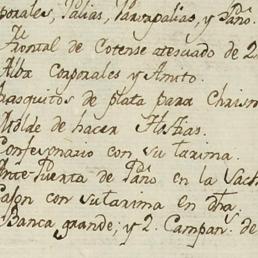 porales, Palias, Parapalias, y Paño.
Frontal de Cotense atesuado de 2
Alba Corporales y Amito.
frasquitos de plata para Chrism
Molde de hacer Hostias.
Confesonario con su tarima.
Ante-Puerta de Paño en la Sach
Cajon con su tarima en dha
Banca grande; y 2. Campan.s de